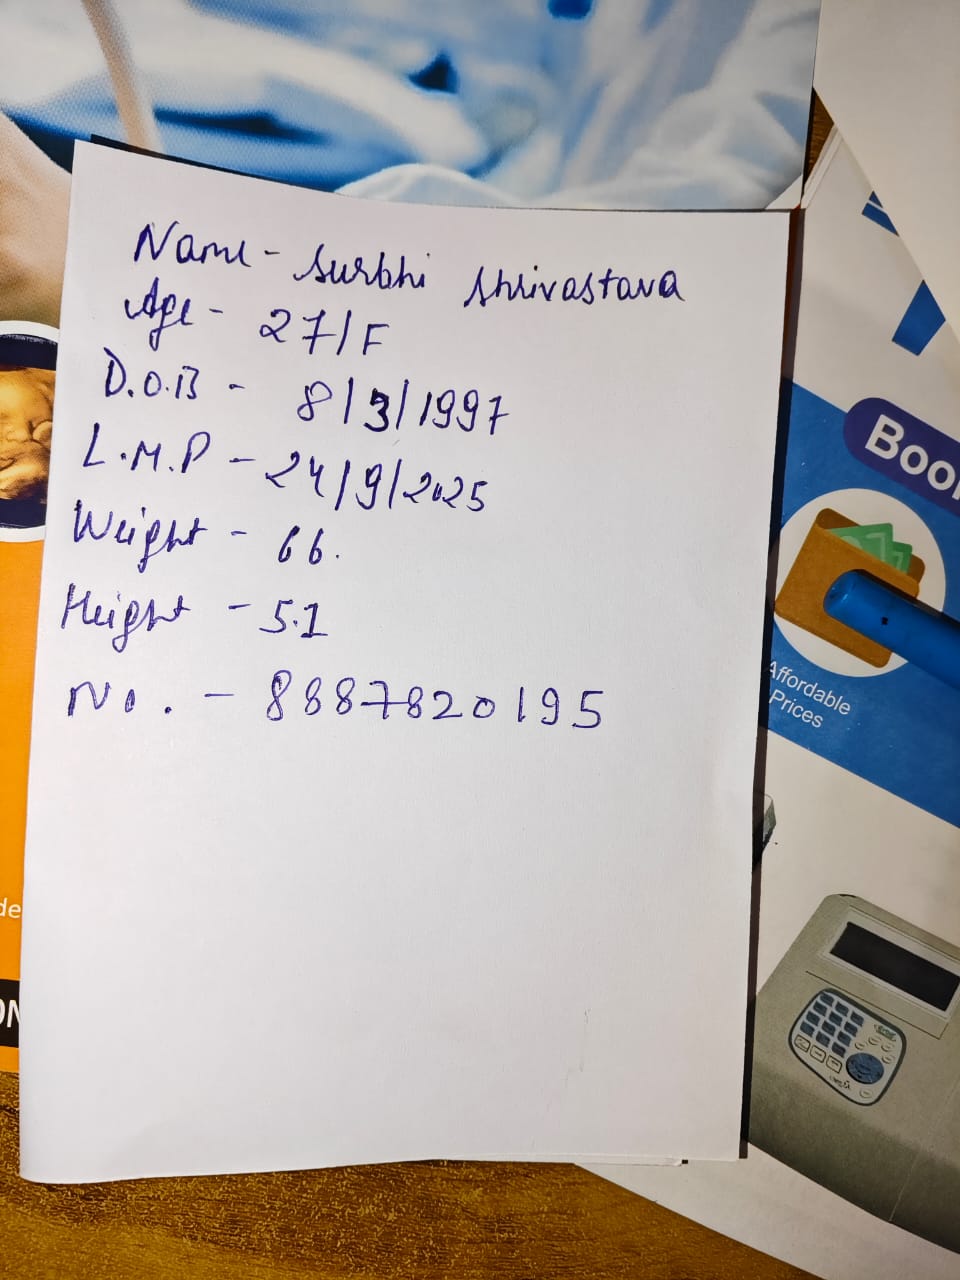 Name - Surbhi Shrivastava
Age - 27/F
D.O.B - 8/3/1997
L.M.P - 24/9/2025
Weight - 66.
Height - 5.1
No. - 8887820195
Affordable
Prices